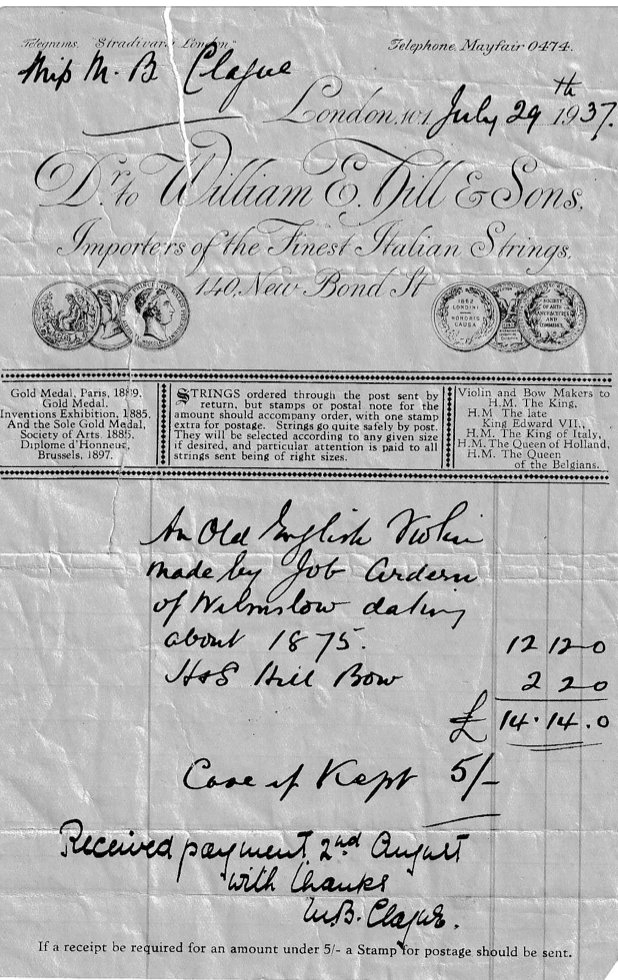 Telegrams, "Stradivari London"
Telephone, Mayfair 0474.
Miss M. B Clague
London, W.1. July 29th 1937.
Dr. to William E. Hill & Sons,
Importers of the Finest Italian Strings,
140, New Bond St
1862
LONDINI
HONORIS
CAUSA
SOCIETY
OF ARTS
MANUFACTURES
AND
COMMERCE
Gold Medal, Paris, 1889.
Gold Medal,
Inventions Exhibition, 1885.
And the Sole Gold Medal,
Society of Arts. 1885.
Diplome d'Honneur,
Brussels, 1897.
STRINGS ordered through the post sent by
return, but stamps or postal note for the
amount should accompany order, with one stamp
extra for postage. Strings go quite safely by post.
They will be selected according to any given size
if desired, and particular attention is paid to all
strings sent being of right sizes.
Violin and Bow Makers to
H.M. The King,
H.M The late
King Edward VII.,
H.M. The King of Italy,
H.M. The Queen of Holland,
H.M. The Queen
of the Belgians.
An Old English Violin
made by Job Ardern
of Wilmslow dating
about 1875. 12 12 0
H & S Hill Bow 2 2 0
£ 14 . 14 . 0
Case if Kept 5/-
Received payment, 2nd August
with thanks
M.B. Clague.
If a receipt be required for an amount under 5/- a Stamp for postage should be sent.